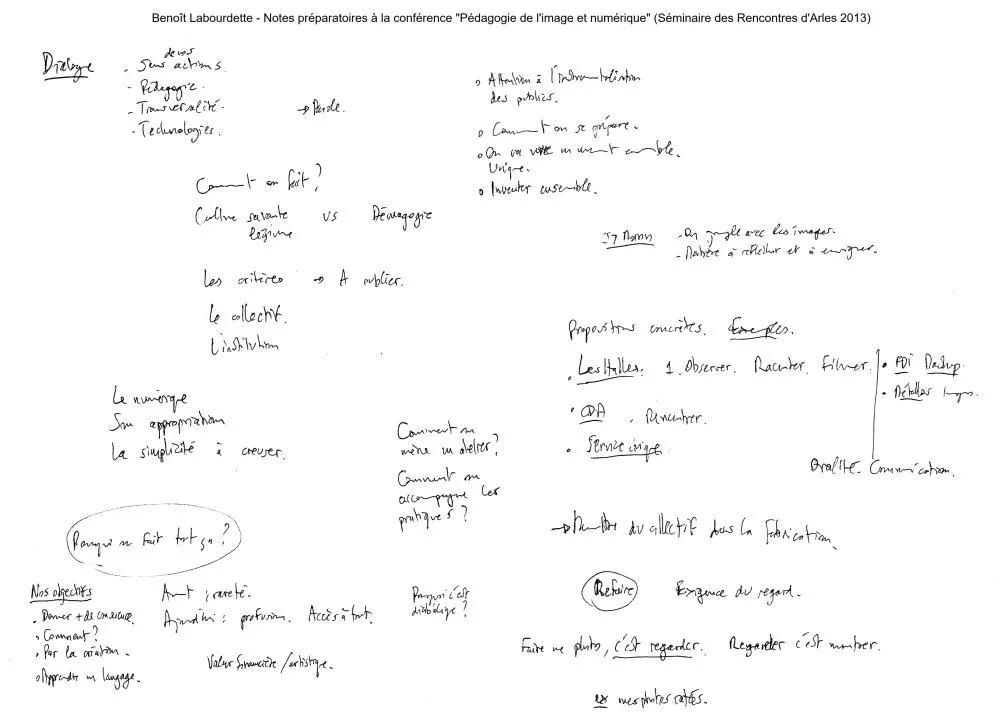 Benoît Labourdette - Notes préparatoires à la conférence "Pédagogie de l'image et numérique" (Séminaire des Rencontres d'Arles 2013)
Dialogue
de vos
. Sens actions.
- Pédagogie.
- Transversalité. → Parole.
- Technologies.
Comment on fait ?
Culture savante vs Démagogie
légitime
Les critères → A oublier.
Le collectif.
L'institution
Le numérique
Son appropriation
La simplicité à creuser.
Pourquoi on fait tout ça ?
Nos objectifs
. Donner + de conscience.
. Comment ?
. Par la création.
. Apprendre un langage.
Avant : rareté.
Aujourd'hui : profusion. Accès à tout.
Valeur financière / artistique.
Comment on
mène un atelier ?
Comment on
accompagne les
pratiques ?
Pourquoi c'est
diabolique ?
o Attention à l'instrumentalisation
des publics.
o Comment on se prépare.
o On va vivre un moment ensemble.
Unique.
o Inventer ensemble.
- On jongle avec les images.
- Matière à réfléchir et à enseigner.
Propositions concrètes. Exemples.
. Les Halles : 1. Observer. Raconter. Filmer.
. CDA . Rencontrer.
. Service civique.
. PDI Mashup.
. Détailler images.
Qualité. Communication.
→ Montre du collectif dans la fabrication.
Refaire Exigence du regard.
Faire une photo, c'est regarder. Regarder c'est montrer.
ex mes photos ratées.